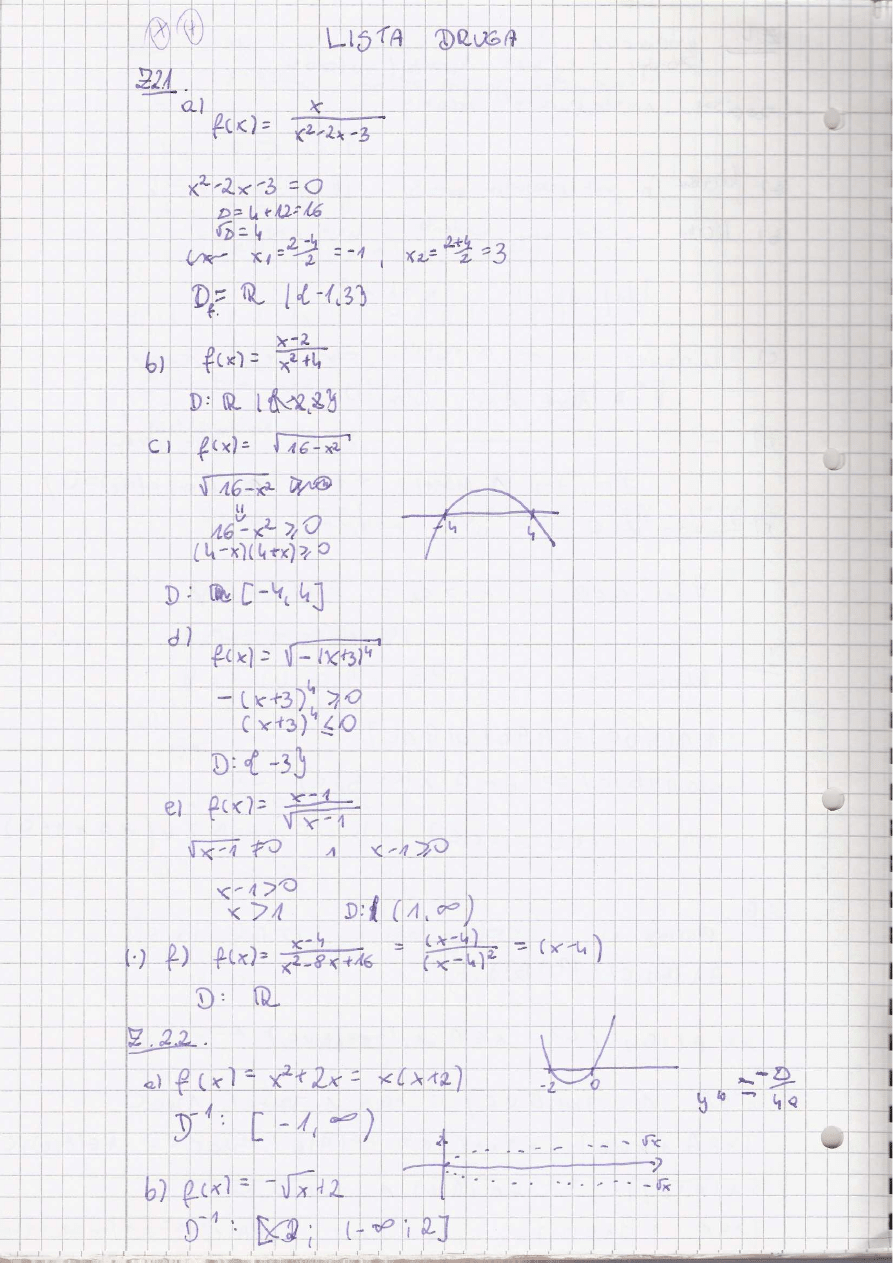 LISTA DRUGA
Z2.1.
a) f(x) = x / (x²-2x-3)
x²-2x-3 = 0
D = 4+12 = 16
√D = 4
x₁ = (2-4)/2 = -1 , x₂ = (2+4)/2 = 3
D_f = ℝ \ {-1,3}
b) f(x) = (x-2)/(x²+4)
D: ℝ
c) f(x) = √(16-x²)
√(16-x²)
16-x² ≥ 0
(4-x)(4+x) ≥ 0
-4 4
D: [-4, 4]
d)
f(x) = √(-(x+3)⁴)
-(x+3)⁴ ≥ 0
(x+3)⁴ ≤ 0
D: {-3}
e) f(x) = (x-1)/√(x-1)
√(x-1) ≠ 0 ∧ x-1 ≥ 0
x-1 > 0
x > 1 D: (1, ∞)
(.) f) f(x) = (x-4)/(x²-8x+16) = (x-4)/(x-4)² = (x-4)
D: ℝ
Z.2.2.
a) f(x) = x²+2x = x(x+2)
-2 0
y_w = -D/4a
D⁻¹: [-1, ∞)
2 √x
b) f(x) = -√x+2
-√x
D⁻¹: (-∞; 2]